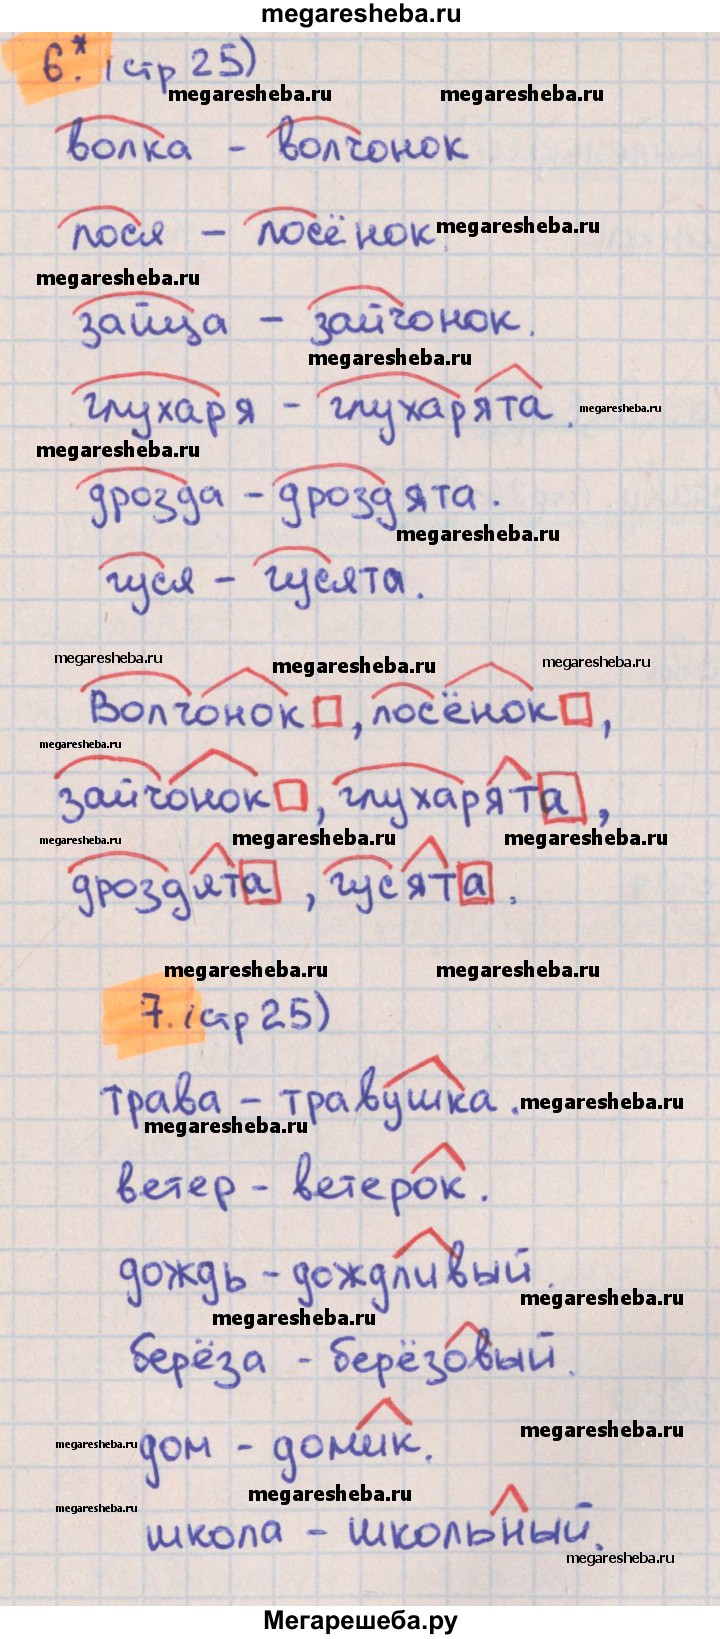 megaresheba.ru
6.* (стр 25)
megaresheba.ru megaresheba.ru
волка - волчонок
лося - лосёнок. megaresheba.ru
megaresheba.ru
зайца - зайчонок.
megaresheba.ru
глухаря - глухарята. megaresheba.ru
megaresheba.ru
дрозда - дроздята.
megaresheba.ru
гуся - гусята.
megaresheba.ru megaresheba.ru megaresheba.ru
Волчонок, лосёнок,
megaresheba.ru
зайчонок, глухарята,
megaresheba.ru megaresheba.ru megaresheba.ru
дроздята, гусята.
megaresheba.ru megaresheba.ru
7. (стр 25)
трава - травушка. megaresheba.ru
megaresheba.ru
ветер - ветерок.
дождь - дождливый.
megaresheba.ru megaresheba.ru
берёза - берёзовый.
megaresheba.ru
дом - домик.
megaresheba.ru
megaresheba.ru
megaresheba.ru
школа - школьный.
megaresheba.ru
Мегарешеба.ру